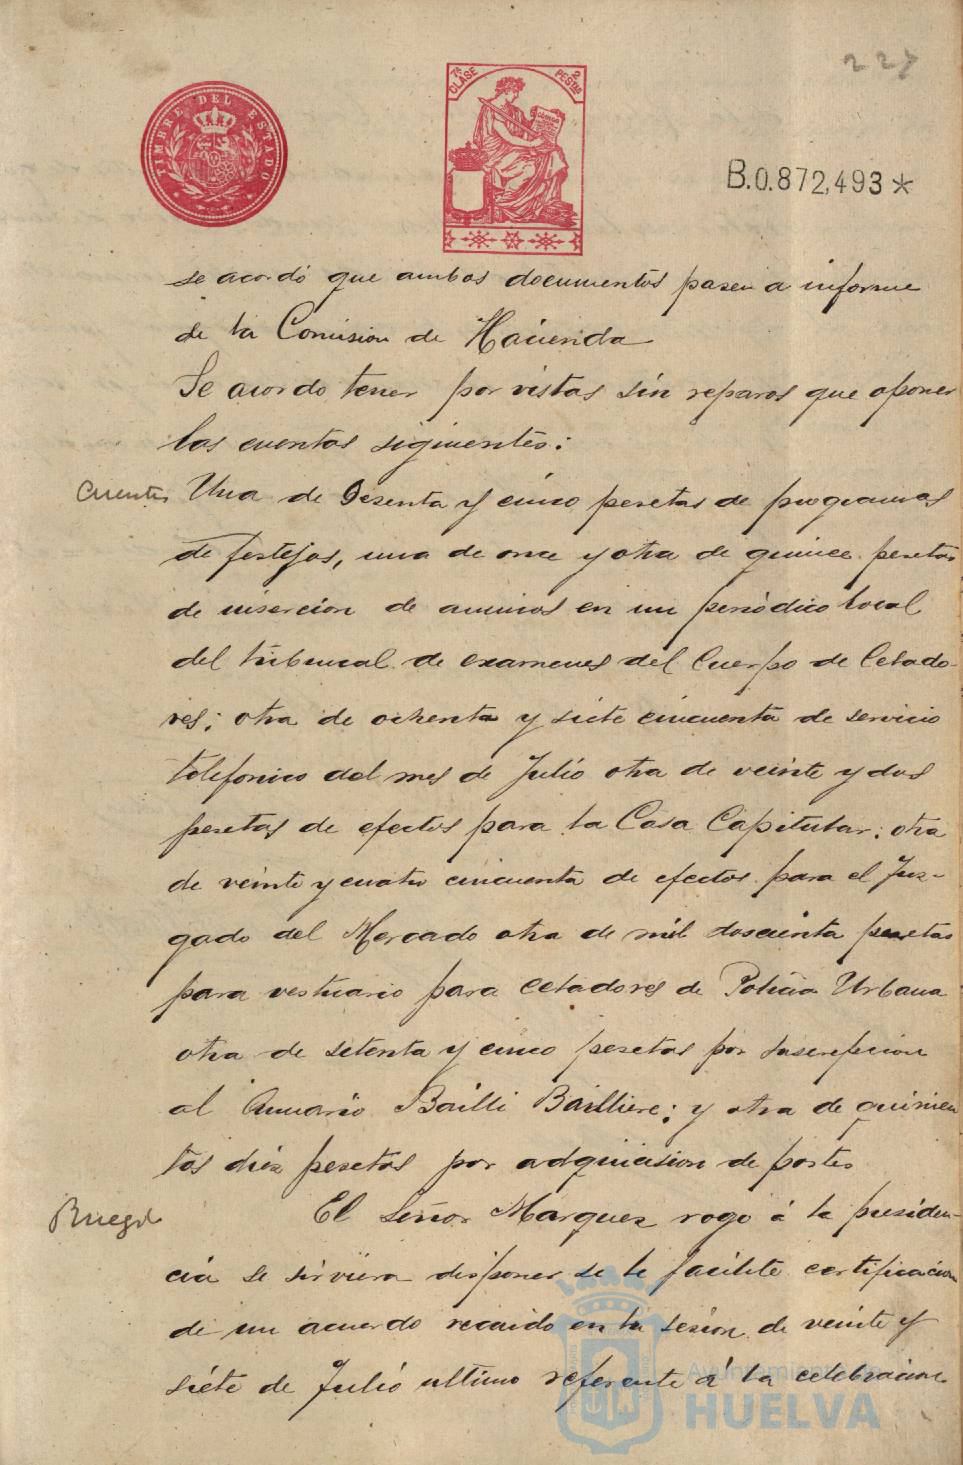 227
TIMBRE DEL ESTADO
7ª CLASE
2 PESTAS
B.0.872,493*
se acordó que ambos documentos pasen a informe
de la Comision de Hacienda
Se acordo tener por vistas sin reparos que oponer
las cuentas siguientes:
Cuentas Una de Sesenta y cinco pesetas de programas
de festejos, una de once y otra de quince pesetas
de insercion de anuncios en un periódico local
del tribunal de examenes del Cuerpo de Celado-
res; otra de ochenta y siete cincuenta de servicio
telefonico del mes de Julio otra de veinte y dos
pesetas de efectos para la Casa Capitular; otra
de veinte y cuatro cincuenta de efectos para el Juz-
gado del Mercado otra de mil doscienta pesetas
para vestuario para celadores de Policia Urbana
otra de setenta y cinco pesetas por suscripcion
al Anuario Bailli Bailliere; y otra de quinien
tas diez pesetas por adquicision de postes
Ruego El Señor Marquez rogo á la presiden-
cia se sirviera disponer se le facilite certificacion
de un acuerdo recaido en la sesion de veinte y
siete de Julio ultimo referente á la celebracion
Ayuntamiento de
HUELVA